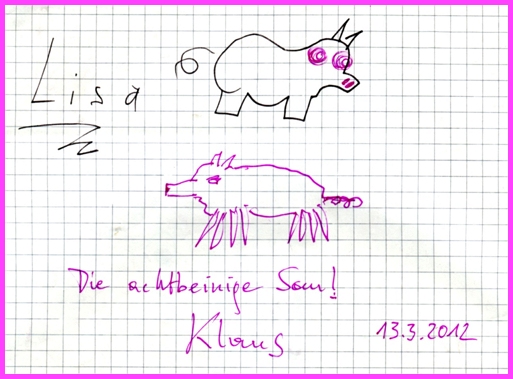 Lisa
Die achtbeinige Sau!
Klaus
13.3.2012